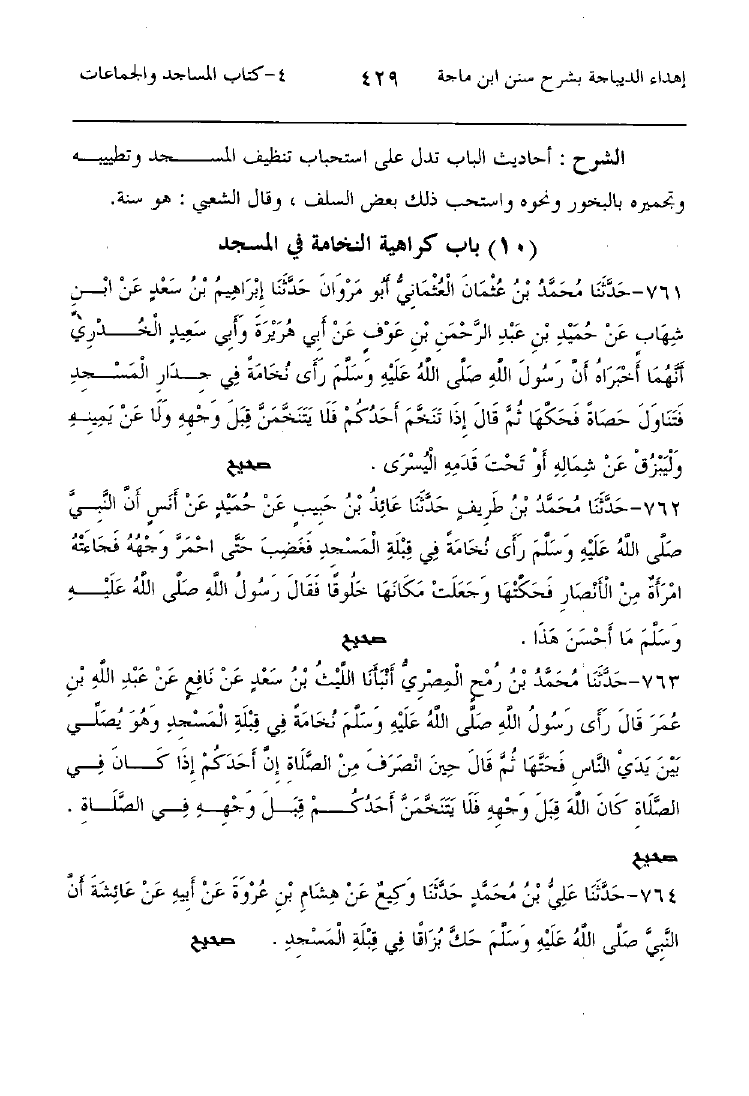 إهداء الديباجة بشرح سنن ابن ماجة ٤٢٩ ٤-كتاب المساجد والجماعات
الشرح : أحاديث الباب تدل على استحباب تنظيف المسجد وتطييبه
وتجميره بالبخور ونحوه واستحب ذلك بعض السلف ، وقال الشعبي : هو سنة.
(١٠) باب كراهية النخامة في المسجد
٧٦١-حَدَّثَنَا مُحَمَّدُ بْنُ عُثْمَانَ الْعُثْمَانِيُّ أَبُو مَرْوَانَ حَدَّثَنَا إِبْرَاهِيمُ بْنُ سَعْدٍ عَنْ ابْنِ
شِهَابٍ عَنْ حُمَيْدِ بْنِ عَبْدِ الرَّحْمَنِ بْنِ عَوْفٍ عَنْ أَبِي هُرَيْرَةَ وَأَبِي سَعِيدٍ الْخُدْرِيِّ
أَنَّهُمَا أَخْبَرَاهُ أَنَّ رَسُولَ اللهِ صَلَّى اللهُ عَلَيْهِ وَسَلَّمَ رَأَى نُخَامَةً فِي جِدَارِ الْمَسْجِدِ
فَتَنَاوَلَ حَصَاةً فَحَكَّهَا ثُمَّ قَالَ إِذَا تَنَخَّمَ أَحَدُكُمْ فَلَا يَتَنَخَّمَنَّ قِبَلَ وَجْهِهِ وَلَا عَنْ يَمِينِهِ
وَلْيَبْزُقْ عَنْ شِمَالِهِ أَوْ تَحْتَ قَدَمِهِ الْيُسْرَى . صحيح
٧٦٢-حَدَّثَنَا مُحَمَّدُ بْنُ طَرِيفٍ حَدَّثَنَا عَائِذُ بْنُ حَبِيبٍ عَنْ حُمَيْدٍ عَنْ أَنَسٍ أَنَّ النَّبِيَّ
صَلَّى اللهُ عَلَيْهِ وَسَلَّمَ رَأَى نُخَامَةً فِي قِبْلَةِ الْمَسْجِدِ فَغَضِبَ حَتَّى احْمَرَّ وَجْهُهُ فَجَاءَتْهُ
امْرَأَةٌ مِنْ الْأَنْصَارِ فَحَكَّتْهَا وَجَعَلَتْ مَكَانَهَا خَلُوقًا فَقَالَ رَسُولُ اللهِ صَلَّى اللهُ عَلَيْهِ
وَسَلَّمَ مَا أَحْسَنَ هَذَا . صحيح
٧٦٣-حَدَّثَنَا مُحَمَّدُ بْنُ رُمْحٍ الْمِصْرِيُّ أَنْبَأَنَا اللَّيْثُ بْنُ سَعْدٍ عَنْ نَافِعٍ عَنْ عَبْدِ اللهِ بْنِ
عُمَرَ قَالَ رَأَى رَسُولُ اللهِ صَلَّى اللهُ عَلَيْهِ وَسَلَّمَ نُخَامَةً فِي قِبْلَةِ الْمَسْجِدِ وَهُوَ يُصَلِّي
بَيْنَ يَدَيْ النَّاسِ فَحَتَّهَا ثُمَّ قَالَ حِينَ انْصَرَفَ مِنْ الصَّلَاةِ إِنَّ أَحَدَكُمْ إِذَا كَانَ فِي
الصَّلَاةِ كَانَ اللهُ قِبَلَ وَجْهِهِ فَلَا يَتَنَخَّمَنَّ أَحَدُكُمْ قِبَلَ وَجْهِهِ فِي الصَّلَاةِ .
صحيح
٧٦٤-حَدَّثَنَا عَلِيُّ بْنُ مُحَمَّدٍ حَدَّثَنَا وَكِيعٌ عَنْ هِشَامِ بْنِ عُرْوَةَ عَنْ أَبِيهِ عَنْ عَائِشَةَ أَنَّ
النَّبِيَّ صَلَّى اللهُ عَلَيْهِ وَسَلَّمَ حَكَّ بُزَاقًا فِي قِبْلَةِ الْمَسْجِدِ . صحيح